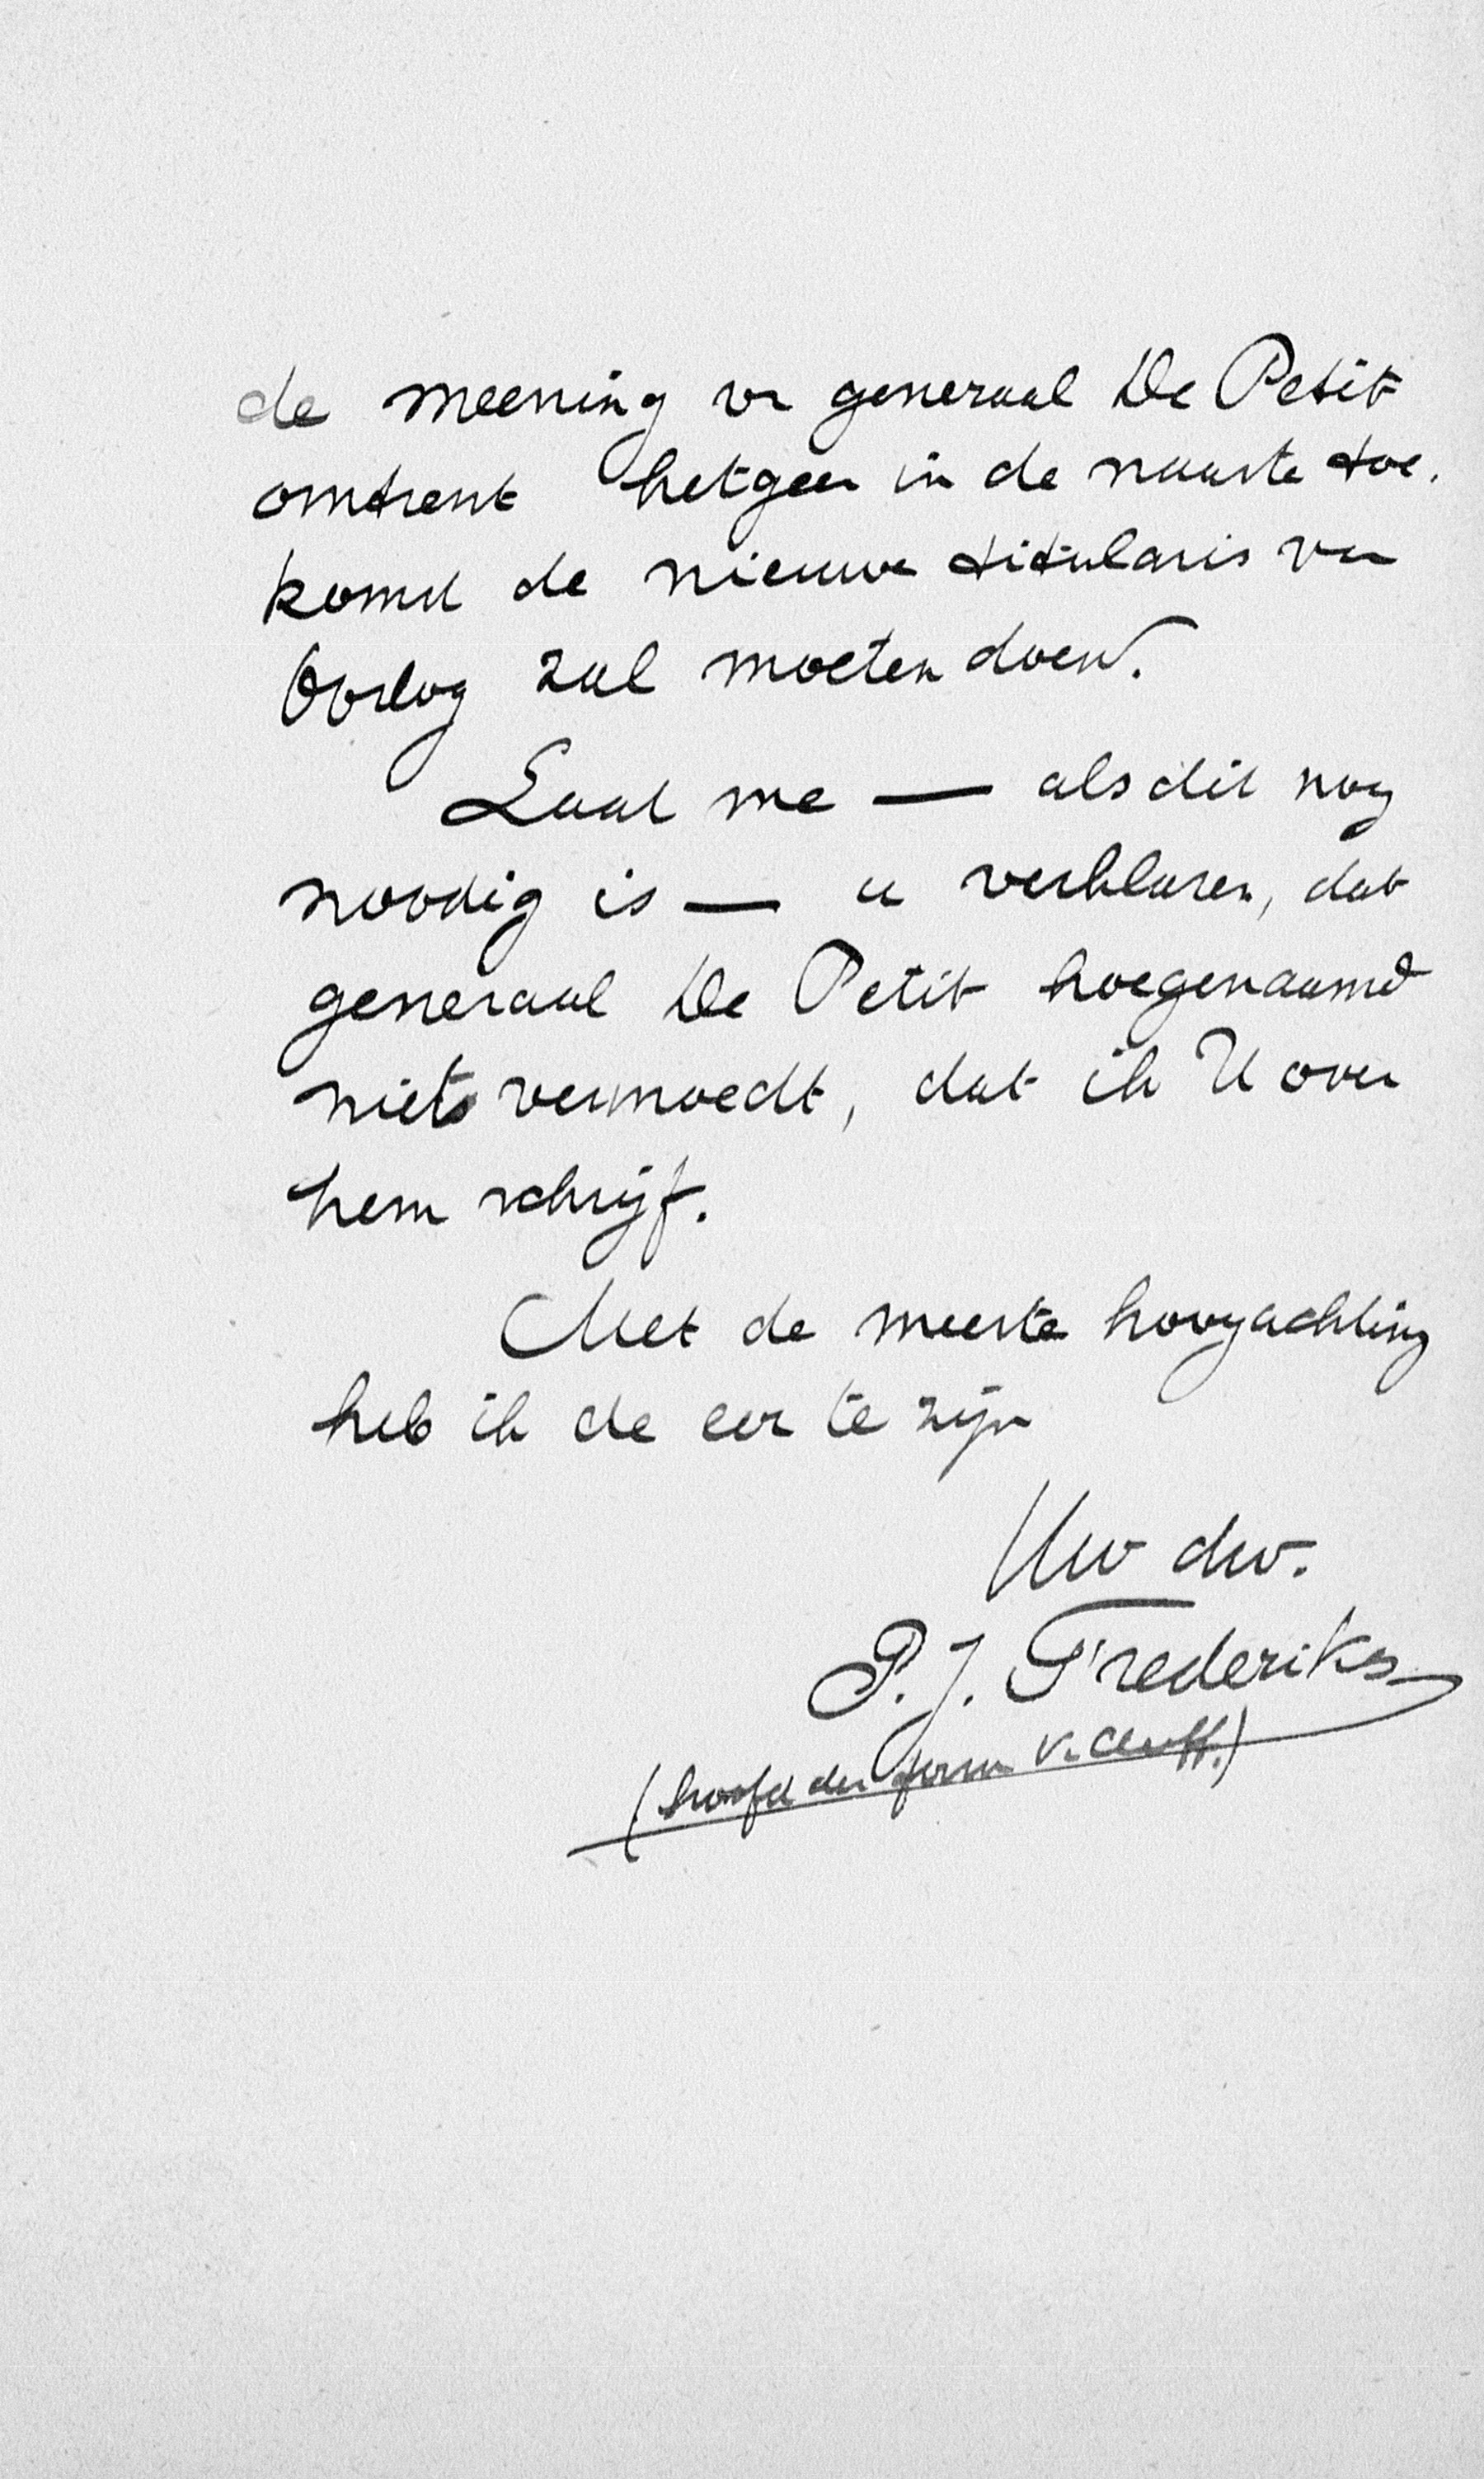 de meening vn generaal De Petit
omtrent hetgeen in de naaste toe.
komst de nieuwe titularis van
Oorlog zal moeten doen.
Laat me — als dit nog
noodig is — u verklaren, dat
generaal De Petit hoegenaamd
niets vermoedt, dat ik U over
hem schrijf.
Met de meeste hoogachting
heb ik de eer te zijn
Uw dw.
P. J. Frederiks
(hoofd der firma v. Cleeff.)